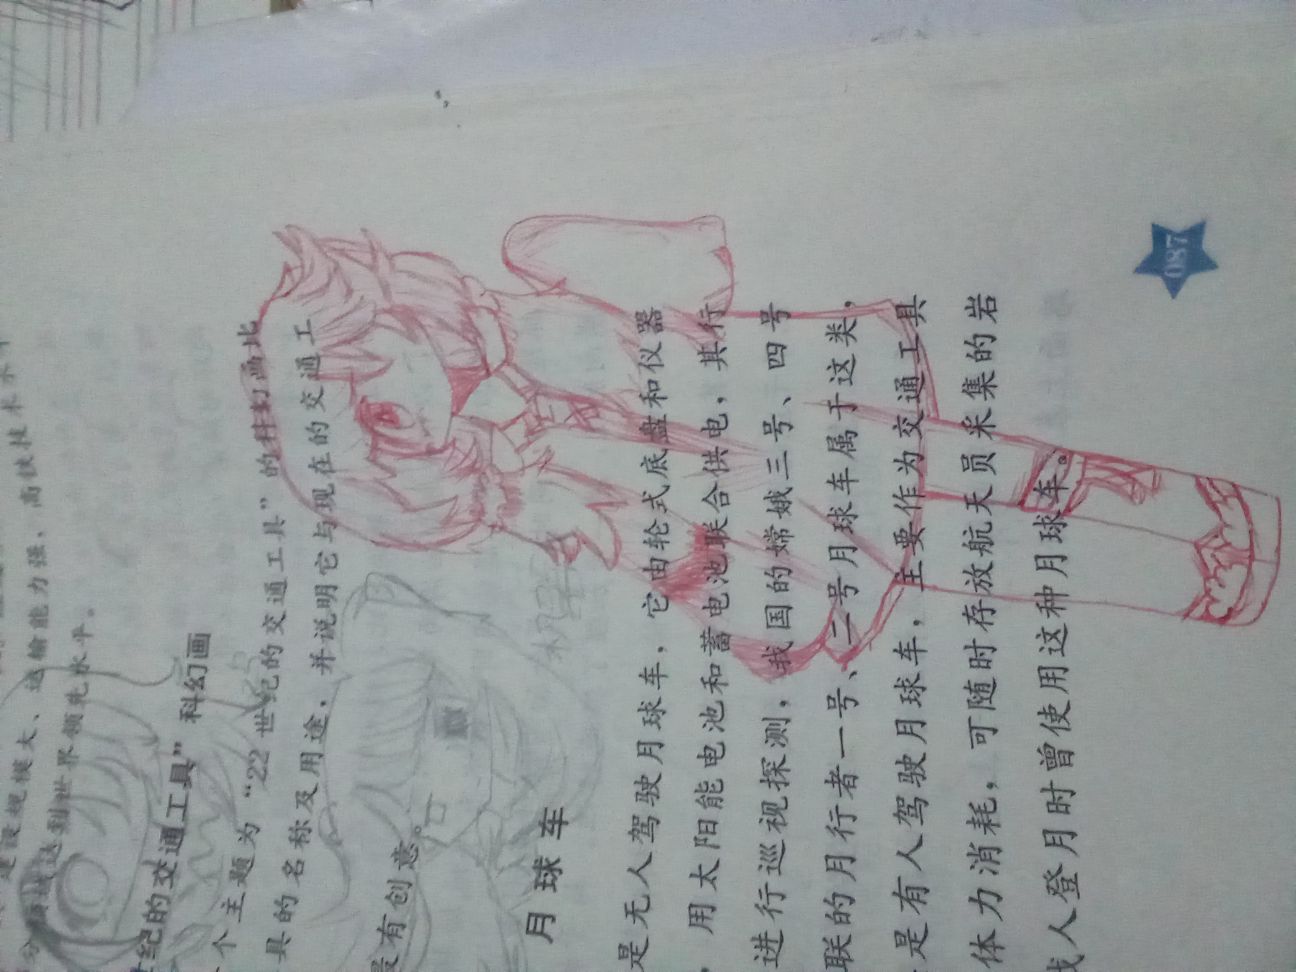 建设规模大、运输能力强、高铁技术水平
达到世界领先水平。
世纪的交通工具”科幻画
个主题为“22世纪的交通工具”的科幻画比
具的名称及用途，并说明它与现在的交通工
最有创意。
月球车
是无人驾驶月球车，它由轮式底盘和仪器
，用太阳能电池和蓄电池联合供电，其行
进行巡视探测，我国的嫦娥三号、四号
联的月行者一号、二号月球车属于这类，
是有人驾驶月球车，主要作为交通工具
体力消耗，可随时存放航天员采集的岩
人登月时曾使用这种月球车。
087